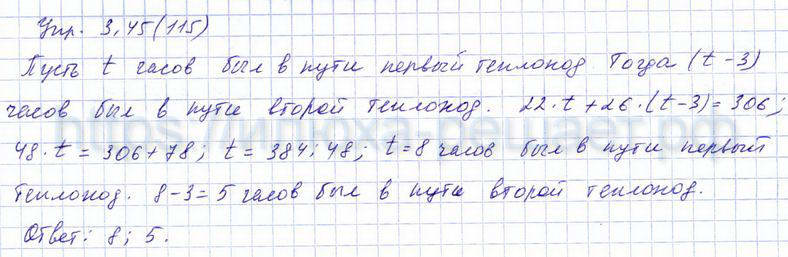 Упр. 3,45(115)
Пусть t часов был в пути первый теплоход. Тогда (t-3)
часов был в пути второй теплоход. 22·t+26·(t-3)=306;
48·t=306+78; t=384:48; t=8 часов был в пути первый
теплоход. 8-3=5 часов был в пути второй теплоход.
Ответ: 8; 5.
https://илюха-решает.рф